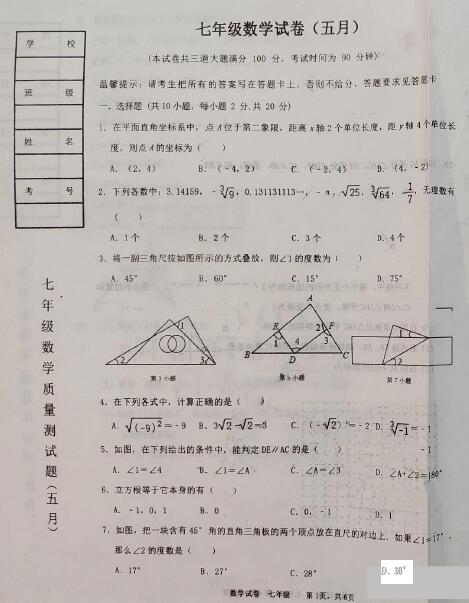 七年级数学试卷（五月）
学 校
班 级
姓 名
考 号
七年级数学质量测试题（五月）
（本试卷共三道大题满分 100 分，考试时间为 90 分钟）
温馨提示：请考生把所有的答案写在答题卡上，否则不给分，答题要求见答题卡
一、选择题（共10小题，每小题 2 分,共 20 分）
1．在平面直角坐标系中，点 A 位于第二象限，距离 x 轴 2 个单位长度，距 y 轴 4 个单位长
度，则点 A 的坐标为（ ）
A.（2，4） B.（-4，2） C.（-2，4） D.（4，-2）
2．下列各数中：3.14159，-∛9，0.131131113…，-π，√25，∛64，-1/7，无理数有
（ ）
A．1个 B．2个 C．3个 D．4个
3．将一副三角尺按如图所示的方式叠放，则∠1的度数为（ ）
A．45° B．60° C．15° D．75°
1 2 3
第 3 小题
A E F B D C 1 2 3 4
第 5 小题
1 2
第 7 小题
4．在下列各式中，计算正确的是（ ）
A．√(-9)²=-9 B．3√2-√2=3 C．(-√2)²=-2 D．∛-1=-1
5．如图，在下列给出的条件中，能判定DE∥AC的是（ ）
A．∠1=∠4 B．∠1=∠A C．∠A=∠3 D．∠A+∠2=180°
6．立方根等于它本身的有（ ）
A．-1，0，1 B．0 C．0，1 D．1
7．如图，把一块含有45°角的直角三角板的两个顶点放在直尺的对边上．如果∠1=17°，
那么∠2的度数是（ ）
A．17° B．27° C．28° D．30°
数学试卷 七年级 第1页，共6页